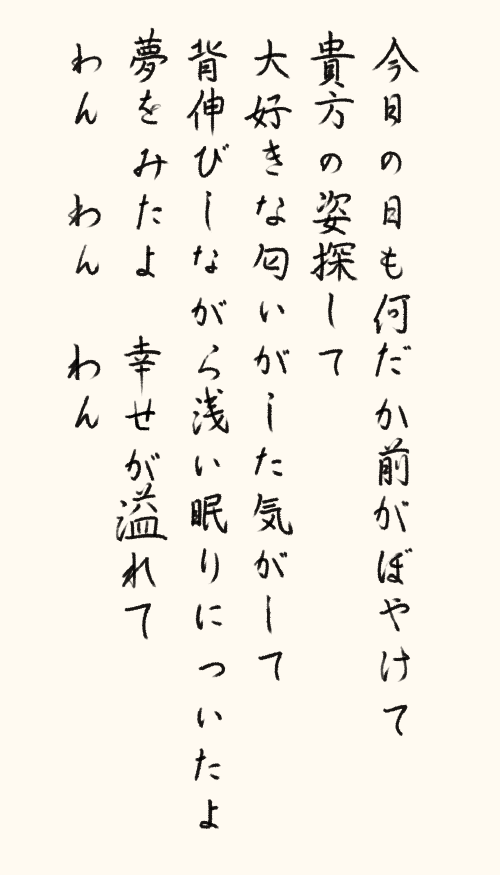 今日の日も何だか前がぼやけて
貴方の姿探して
大好きな匂いがした気がして
背伸びしながら浅い眠りについたよ
夢をみたよ　幸せが溢れて
わん　わん　わん